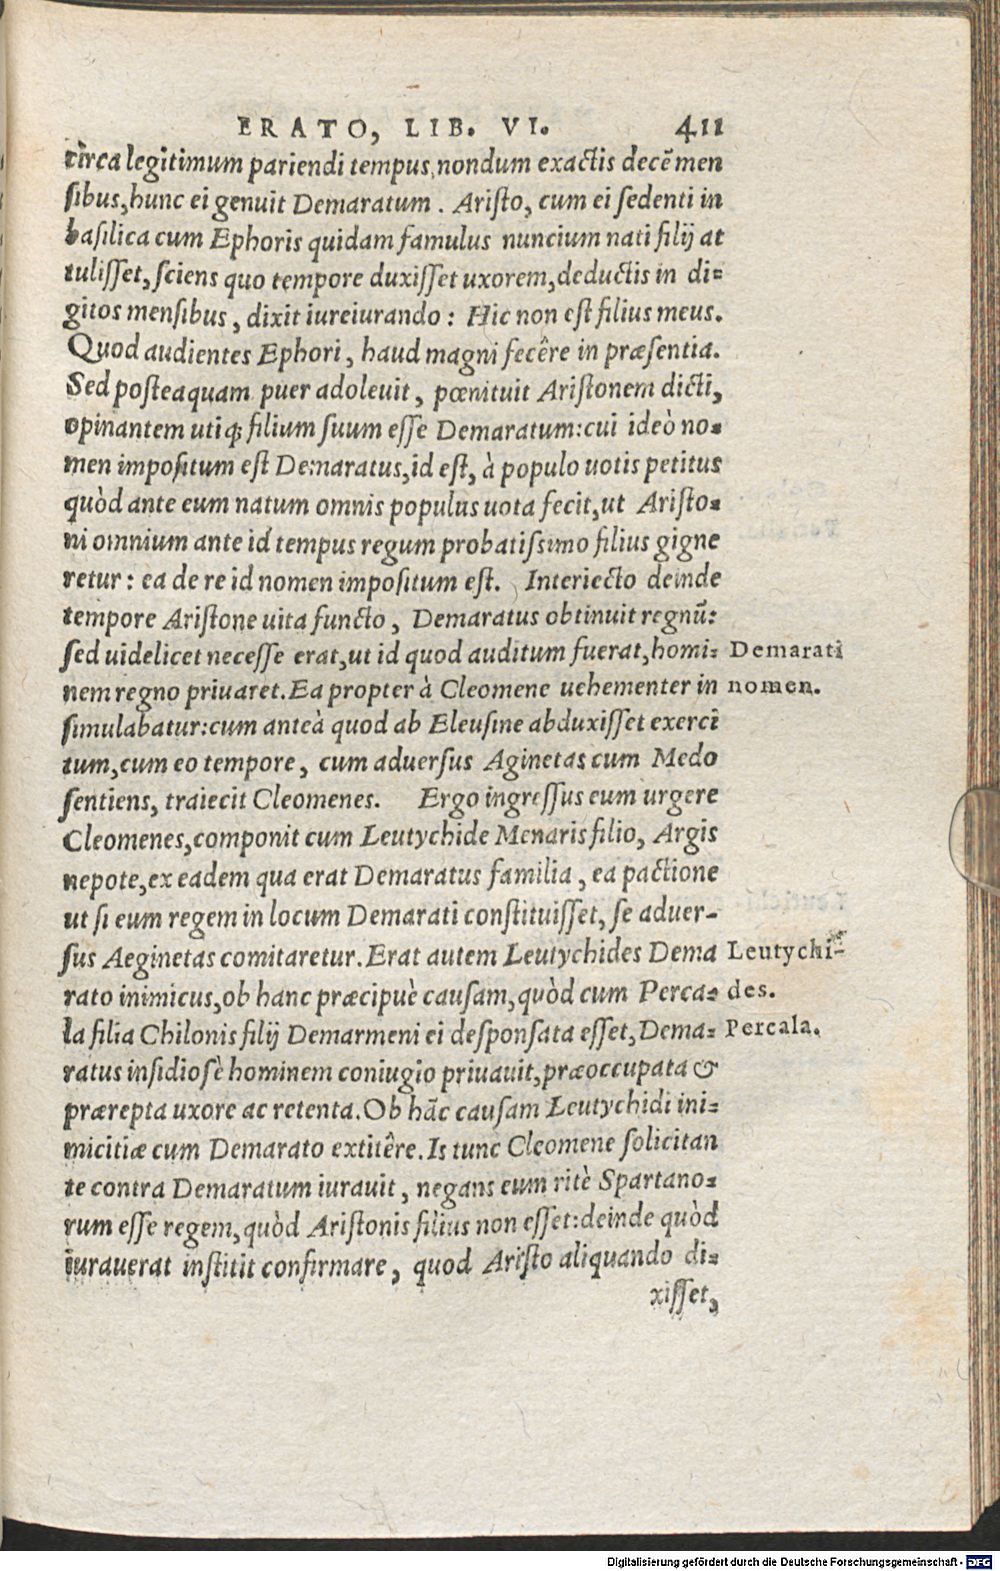 ERATO, LIB. VI. 411
circa legitimum pariendi tempus, nondum exactis decẽ men
sibus, hunc ei genuit Demaratum. Aristo, cum ei sedenti in
basilica cum Ephoris quidam famulus nuncium nati filij at
tulisset, sciens quo tempore duxisset uxorem, deductis in di=
gitos mensibus, dixit iureiurando: Hic non est filius meus.
Quod audientes Ephori, haud magni fecêre in præsentia.
Sed posteaquam puer adoleuit, pœnituit Aristonem dicti,
opinantem utiqꝫ filium suum esse Demaratum: cui ideò no=
men impositum est Demaratus, id est, à populo uotis petitus
quòd ante eum natum omnis populus uota fecit, ut Aristo=
ni omnium ante id tempus regum probatissimo filius gigne
retur: ea de re id nomen impositum est. Interiecto deinde
tempore Aristone uita functo, Demaratus obtinuit regnũ:
sed uidelicet necesse erat, ut id quod auditum fuerat, homi= Demarati
nem regno priuaret. Ea propter à Cleomene uehementer in nomen.
simulabatur: cum anteà quod ab Eleusine abduxisset exerci
tum, cum eo tempore, cum aduersus Aginetas cum Medo
sentiens, traiecit Cleomenes. Ergo ingressus eum urgere
Cleomenes, componit cum Leutychide Menaris filio, Argis
nepote, ex eadem qua erat Demaratus familia, ea pactione
ut si eum regem in locum Demarati constituisset, se aduer-
sus Aeginetas comitaretur. Erat autem Leutychides Dema Leutychi-
rato inimicus, ob hanc præcipuè causam, quòd cum Perca= des.
la filia Chilonis filij Demarmeni ei desponsata esset, Dema= Percala.
ratus insidiosè hominem coniugio priuauit, præoccupata &
prærepta uxore ac retenta. Ob hãc causam Leutychidi ini=
micitiæ cum Demarato extitêre. Is tunc Cleomene solicitan
te contra Demaratum iurauit, negans eum ritè Spartano=
rum esse regem, quòd Aristonis filius non esset: deinde quòd
iurauerat institit confirmare, quod Aristo aliquando di=
xisset,
Digitalisierung gefördert durch die Deutsche Forschungsgemeinschaft - DFG